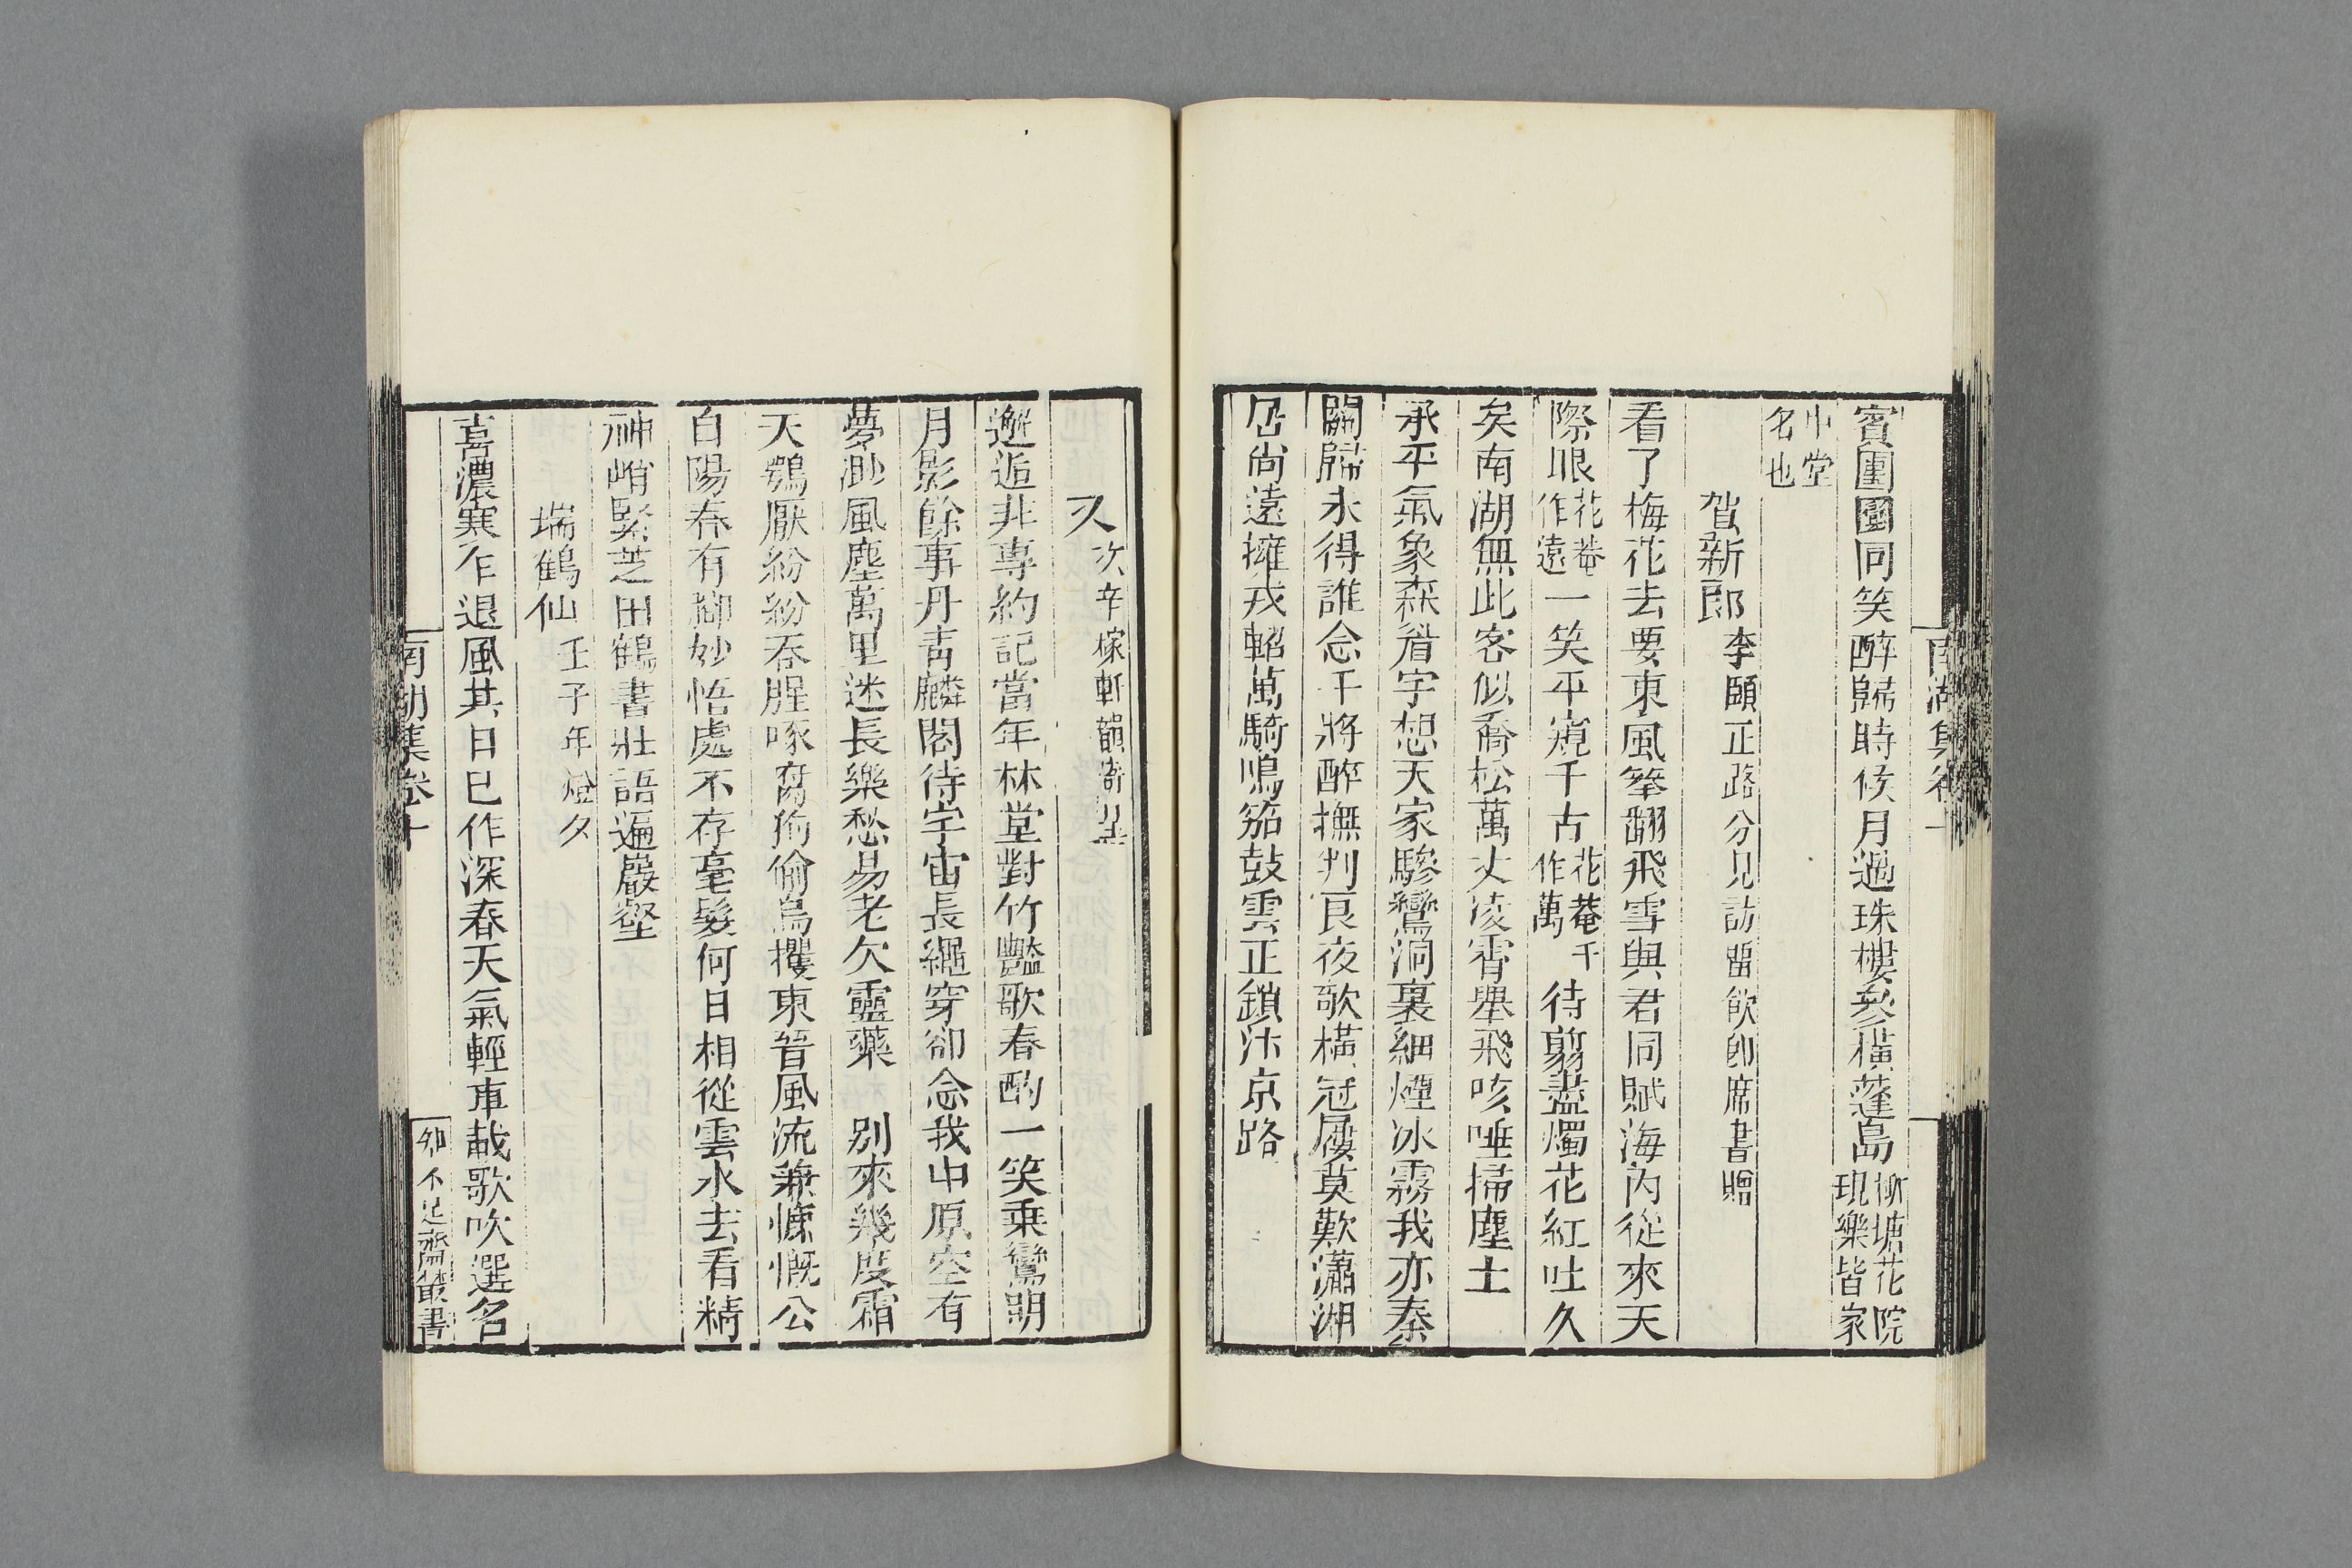 賓團圞同笑醉歸時候月過珠樓參橫蓬島柳塘花院現樂皆家
中堂名也
賀新郎李頤正路分見訪留飲卽席書贈
看了梅花去要東風攀翻飛雪與君同賦海內從來天
際眼花菴作遠一笑平窺千古花菴千作萬待翦盡燭花紅吐久
矣南湖無此客似喬松萬丈凌霄舉飛咳唾掃塵土
承平氣象森眉宇想天家驂鸞洞裏細煙冰霧我亦秦
關歸未得誰念干將醉撫判良夜歌橫冠屨莫歎瀟湘
居尚遠擁戎軺萬騎鳴笳鼓雲正鎖汴京路
南湖集卷十
又次辛稼軒韻寄呈
邂逅非專約記當年林堂對竹豔歌春酌一笑乘鸞明
月影餘事丹青麟閣待宇宙長繩穿卻念我中原空有
夢渺風塵萬里迷長樂愁易老欠靈藥 別來幾度霜
天鶚厭紛紛吞腥啄腐狗偷烏攫東晉風流兼慷慨公
自陽春有腳妙悟處不存毫髮何日相從雲水去看精
神峭緊芝田鶴書壯語遍巖壑
瑞鶴仙壬子年燈夕
喜濃寒乍退風共日已作深春天氣輕車載歌吹選名
南湖集卷十
知不足齋叢書